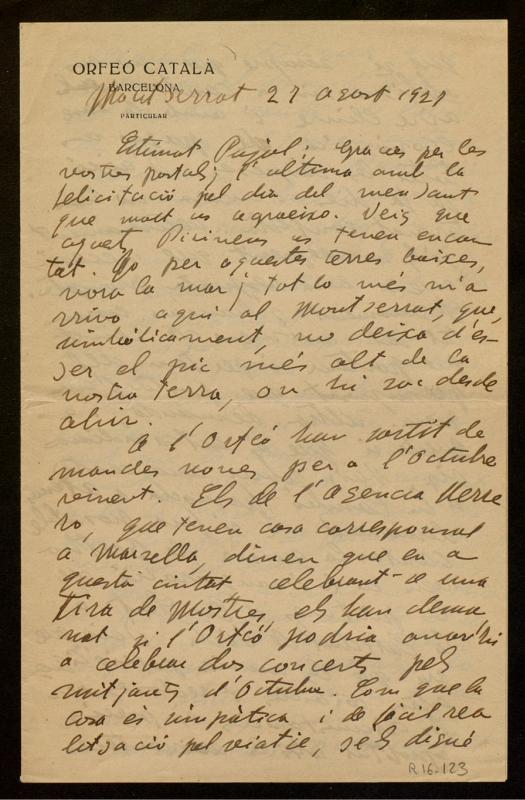 ORFEÓ CATALÀ
BARCELONA
PARTICULAR
Montserrat 27 agost 1921
Estimat Pujol: Gracies per les
vostres postals; l'ultima amb la
felicitació pel dia del meu Sant
que molt us agraeixo. Veig que
aquets Pirineus us tenen encan
tat. Jo per aquestes terres baixes,
vora la mar; tot lo més m'a
rrivo aquí al Montserrat, que,
simbòlicament, no deixa d'és-
ser el pic més alt de la
nostra terra, on hi soc desde
ahir.
A l'Orfeó han sortit de
mandes noves per a l'Octubre
vinent. Els de l'Agencia Herre
ro, que tenen casa corresponsal
a Marsella, diuen que en a
questa ciutat celebrant-se una
Fira de Mostres, els han dema
nat si l'Orfeó podria anar-hi
a celebrar dos concerts pels
mitjants d'Octubre. Com que la
cosa és simpàtica i de fàcil rea
lització pel viatje, se'ls digué
R.16-123